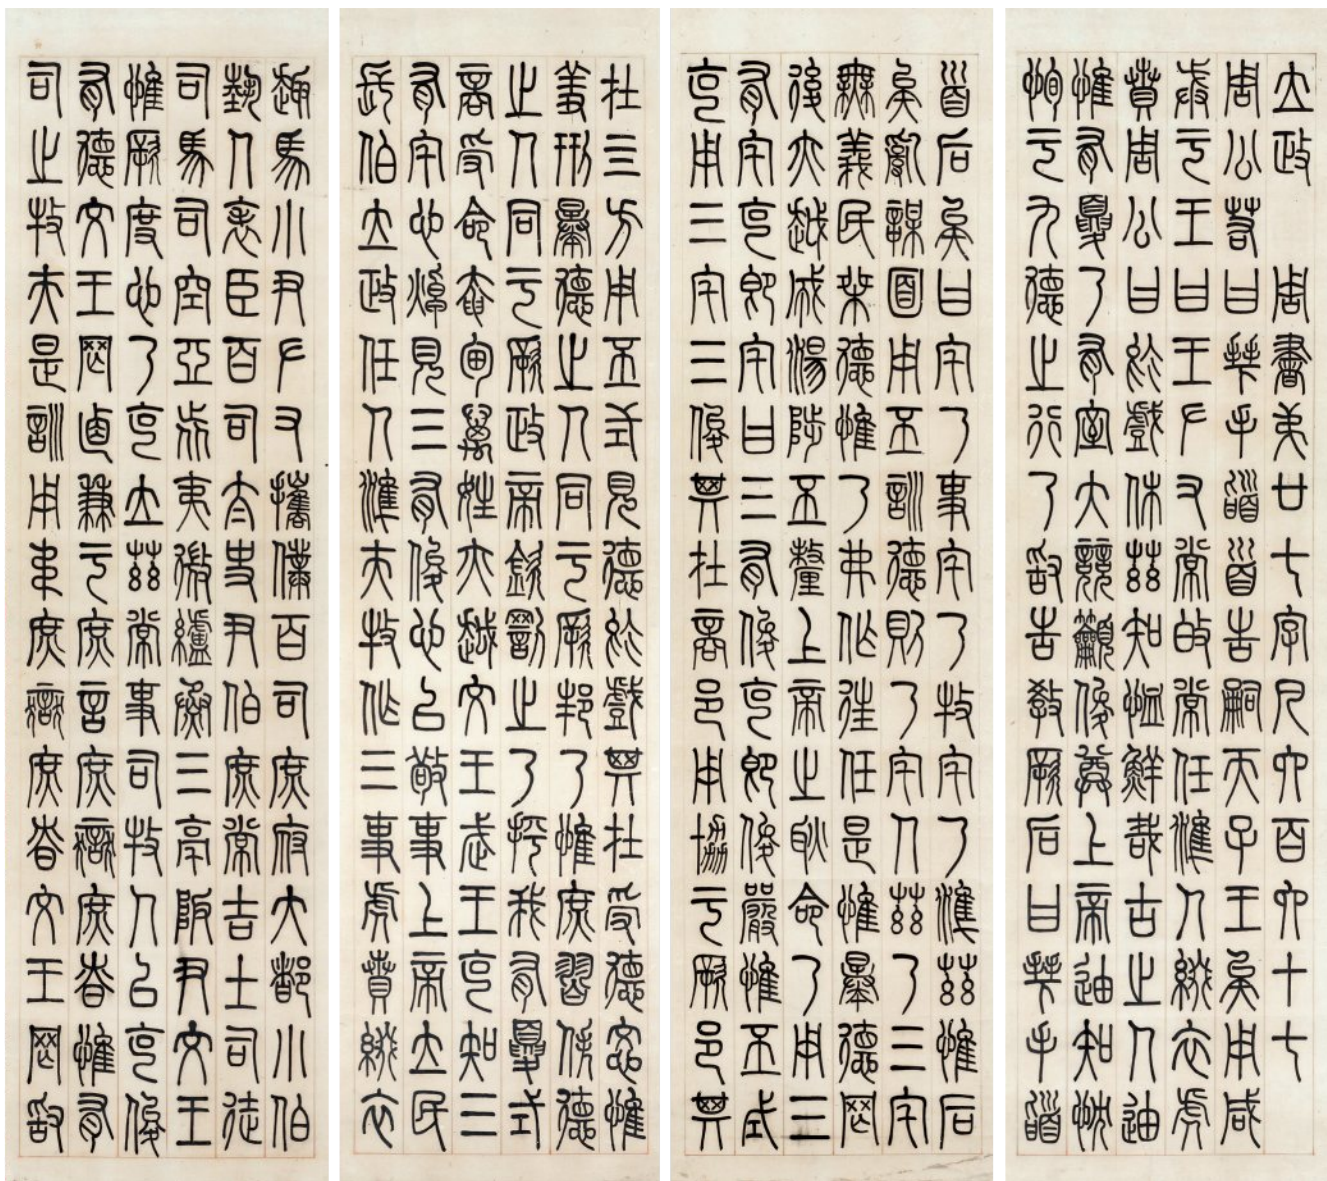 立政 周書弟廿七字凡六百六十七
周公若曰拜手䭫首告嗣天子王矣用咸
戒于王曰王左右常敀常任準人綴衣虎
賁周公曰於戲休茲知恤鮮哉古之人迪
惟有夏乃有室大競籲俊尊上帝迪知忱
恂于九德之行乃敢告教厥后曰拜手䭫
首后矣曰宅乃事宅乃牧宅乃準茲惟后
矣亂謀面用丕訓德則乃宅人茲乃三宅
無義民桀德惟乃弗作往任是惟暴德罔
後亦越成湯陟丕釐上帝之耿命乃用三
有宅克即宅曰三有俊克即俊嚴惟丕式
克用三宅三俊其在商邑用協于厥邑其
在亖方用丕式見德於戲其在受德忞惟
羞刑暴德之人同于厥邦乃惟庶習佚德
之人同于厥政帝欽罰之乃抨我有夏式
商受命奄甸萬姓亦越文王武王克知三
有宅心焯見三有俊心以敬事上帝立民
長伯立政任人準夫牧作三事虎賁綴衣
趣馬小尹左右攜僕百司庶府大都小伯
藝人表臣百司太史尹伯庶常吉士司徒
司馬司空亞旅夷微纑烝三亳阪尹文王
惟厥度心乃克立茲常事司牧人以克俊
有德文王罔攸兼于庶言庶獄庶慎惟有
司之牧夫是訓用違庶獄庶慎文王罔敢